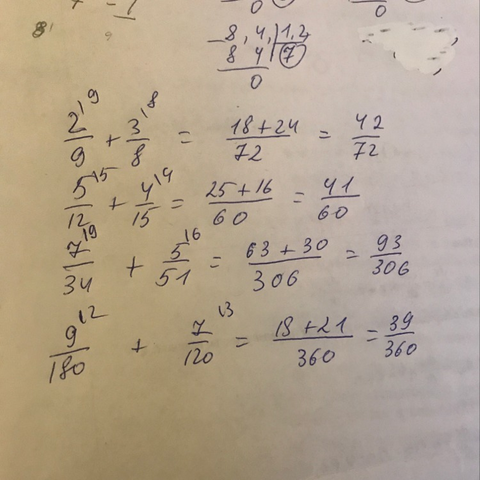 0
0
8,4 1,2
8 4 7
0
2/9 '9 + 3/8 '8 = 18+24/72 = 42/72
5/12 '5 + 4/15 '4 = 25+16/60 = 41/60
7/34 '9 + 5/51 '6 = 63+30/306 = 93/306
9/180 '2 + 7/120 '3 = 18+21/360 = 39/360